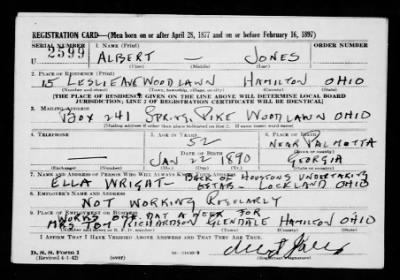 REGISTRATION CARD—(Men born on or after April 28, 1877 and on or before February 16, 1897)
SERIAL NUMBER 1. NAME (Print) ORDER NUMBER
U 2599 ALBERT — JONES
(First) (Middle) (Last)
2. PLACE OF RESIDENCE (Print)
15 LESLIE AVE WOODLAWN HAMILTON OHIO
(Number and street) (Town, township, village, or city) (County) (State)
[THE PLACE OF RESIDENCE GIVEN ON THE LINE ABOVE WILL DETERMINE LOCAL BOARD
JURISDICTION; LINE 2 OF REGISTRATION CERTIFICATE WILL BE IDENTICAL]
3. MAILING ADDRESS
BOX 241 SPRING PIKE WOODLAWN OHIO
[Mailing address if other than place indicated on line 2. If same insert word same]
4. TELEPHONE 5. AGE IN YEARS 6. PLACE OF BIRTH
52 NEAR
DATE OF BIRTH (Town or county)
JAN 22 1890 GEORGIA
(Exchange) (Number) (Mo.) (Day) (Yr.) (State or country)
7. NAME AND ADDRESS OF PERSON WHO WILL ALWAYS KNOW YOUR ADDRESS
ELLA WRIGHT — BACK HOUSTONS UNDERTAKING
ESTAB — LOCKLAND OHIO
8. EMPLOYER'S NAME AND ADDRESS
NOT WORKING REGULARLY
9. PLACE OF EMPLOYMENT OR BUSINESS
WORKS ODD DAY A WEEK FOR
MRS TOM RICHARDSON GLENDALE HAMILTON OHIO
(Number and street or R. F. D. number) (Town) (County) (State)
I AFFIRM THAT I HAVE VERIFIED ABOVE ANSWERS AND THAT THEY ARE TRUE.
D. S. S. Form 1
(Revised 4-1-42) (over)